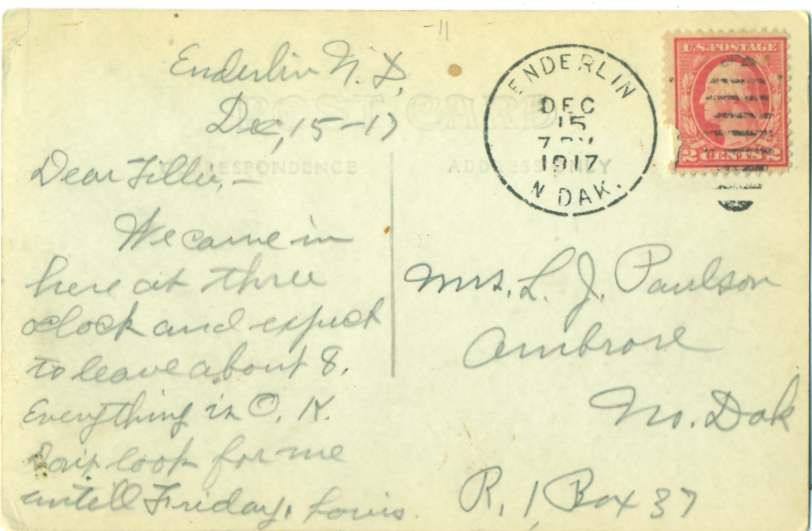 -11
Enderlin N. D,
Dec, 15-17
Dear Tillie,-
We came in
here at three
oclock and expect
to leave about 8.
Everything is O. K.
Don't look for me
untill Friday. Louis.
POST CARD
CORRESPONDENCE
ADDRESS ONLY
ENDERLIN
DEC
15
1917
N DAK.
U.S. POSTAGE
2 CENTS 2
Mrs. L. J. Paulson
Ambrose
No. Dak
R. 1 Box 37